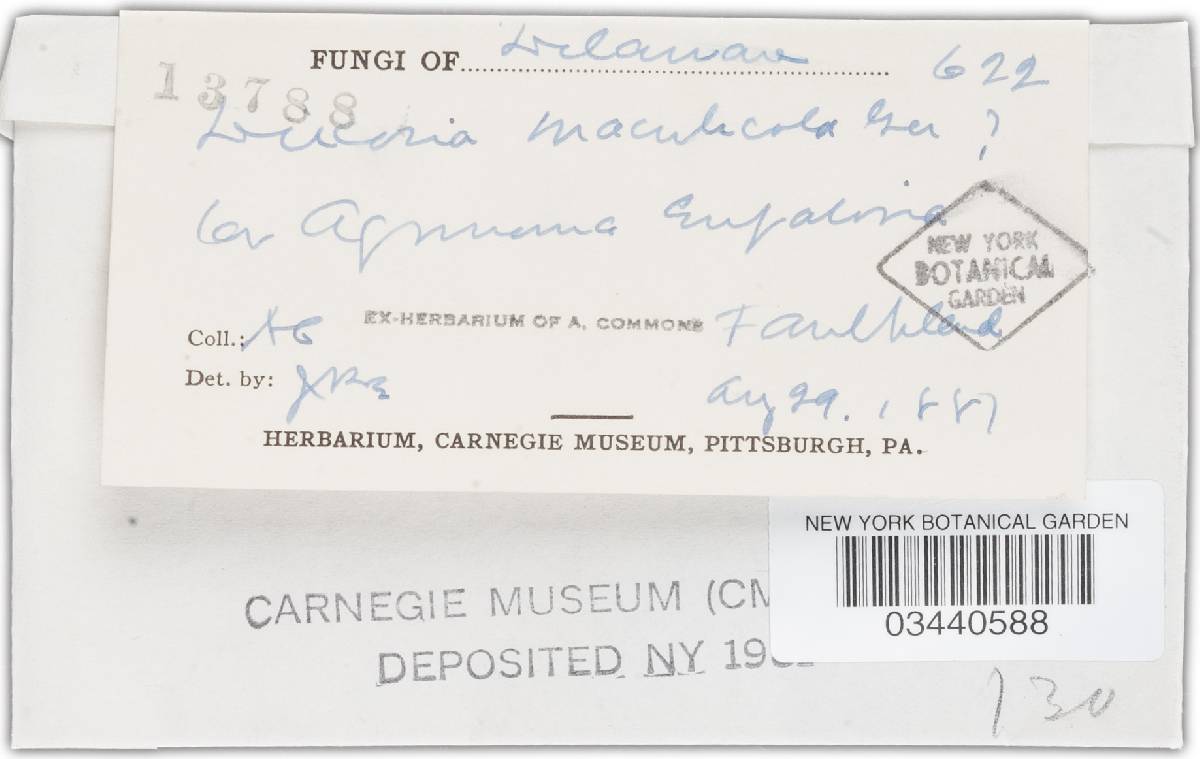 FUNGI OF Delaware 622
13788
maculicola Ger ?
on Agrimonia Eupatoria
NEW YORK
BOTANICAL
GARDEN
EX-HERBARIUM OF A. COMMONS
Faulkland
Coll.: AC
Det. by: JBE
Aug 29. 1887
HERBARIUM, CARNEGIE MUSEUM, PITTSBURGH, PA.
NEW YORK BOTANICAL GARDEN
03440588
CARNEGIE MUSEUM (CM
DEPOSITED NY
130